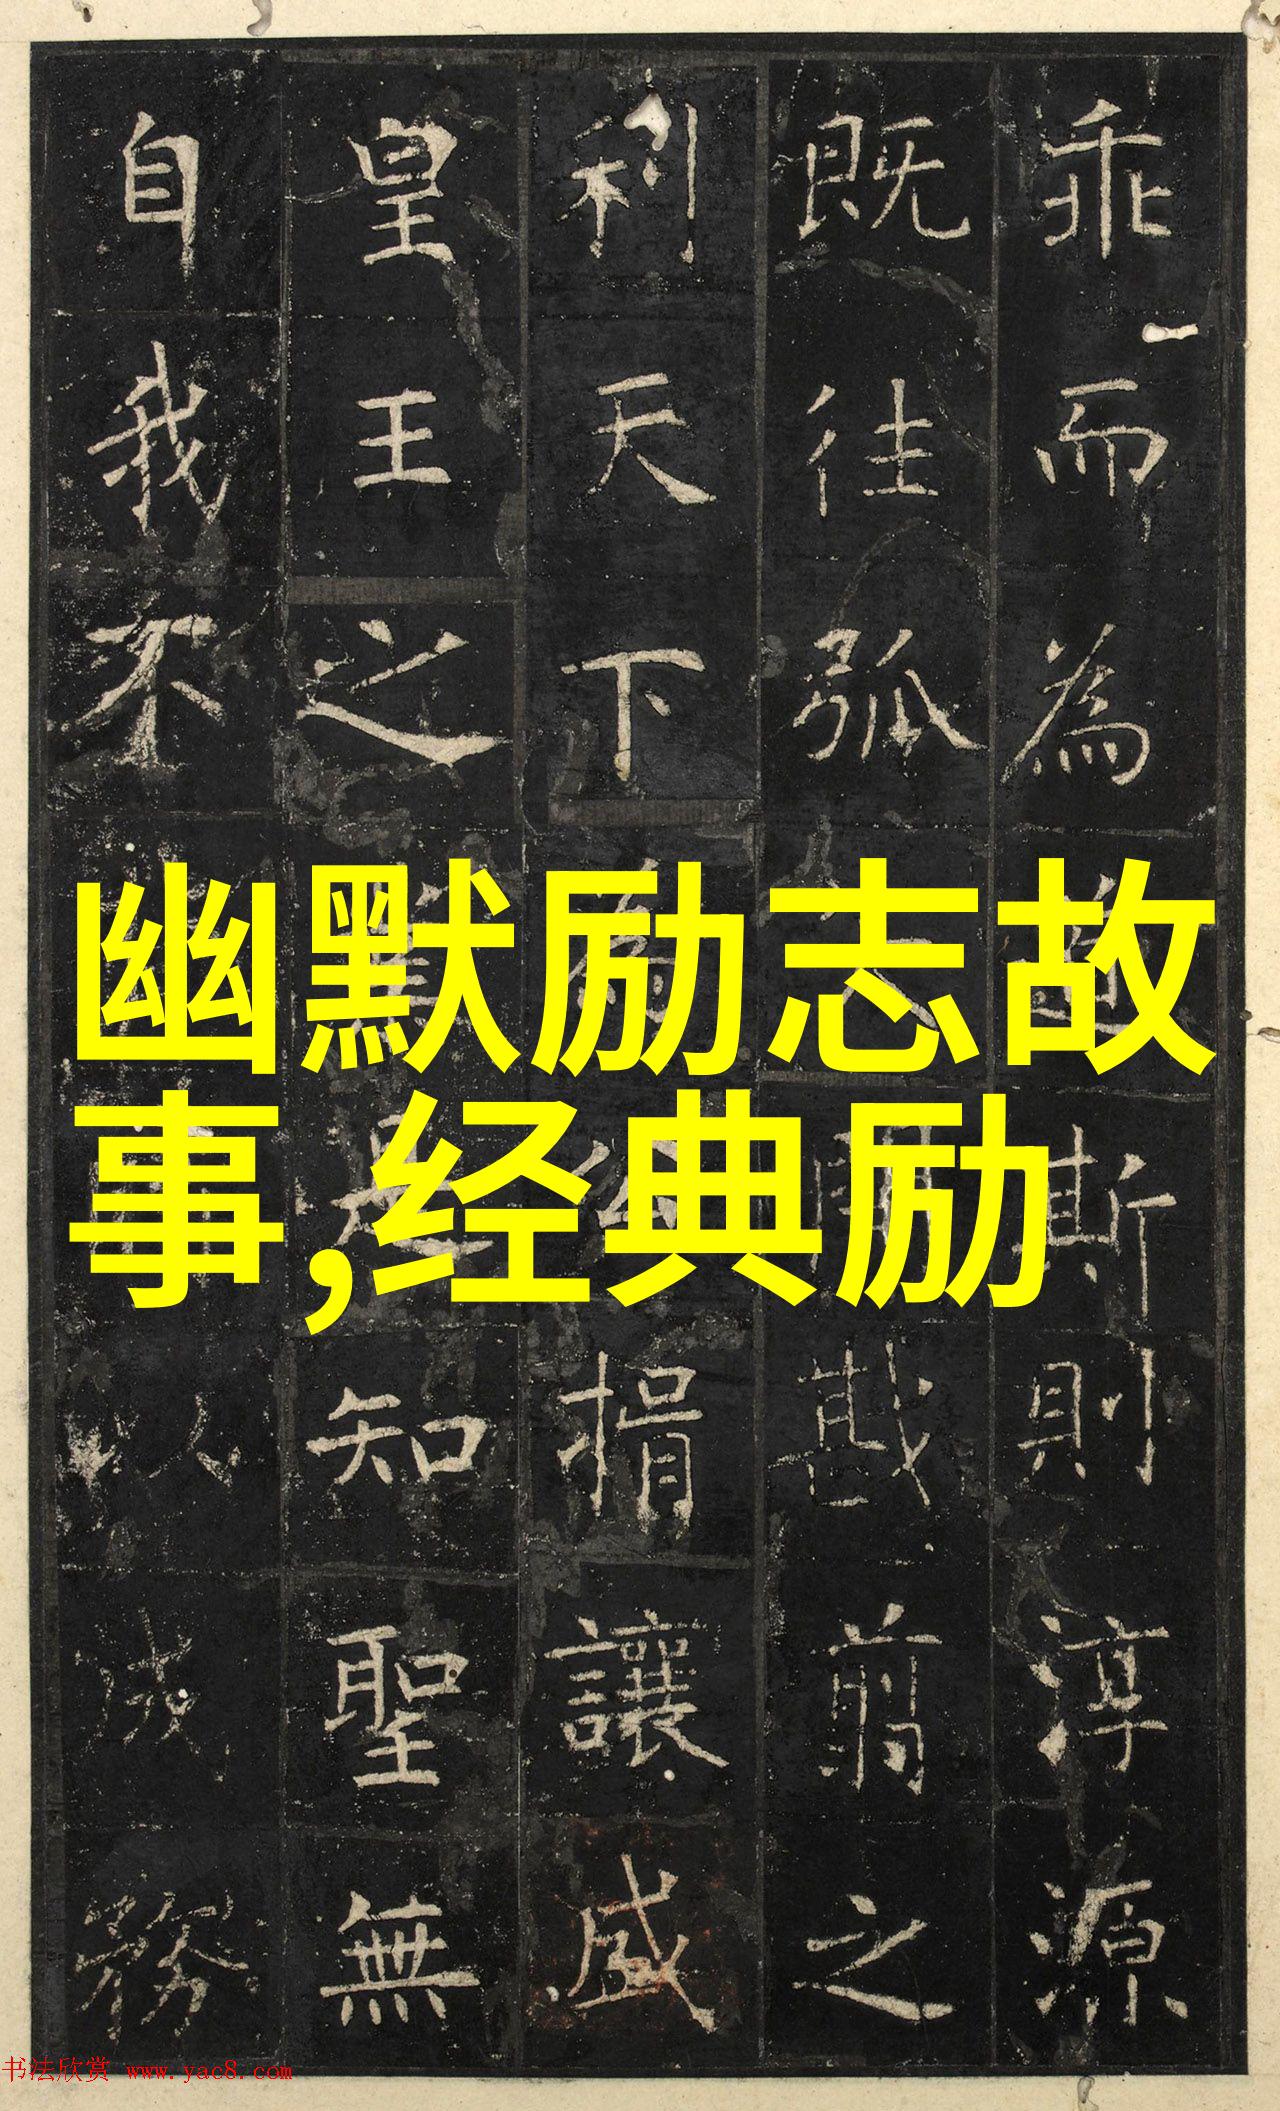 幽默励志故
事,经典励
乖而為斯則淳源
既往弧戡翦之
利天下揖讓盛
皇王之知聖無
自我不以成務
书法欣赏 www.yac8.com